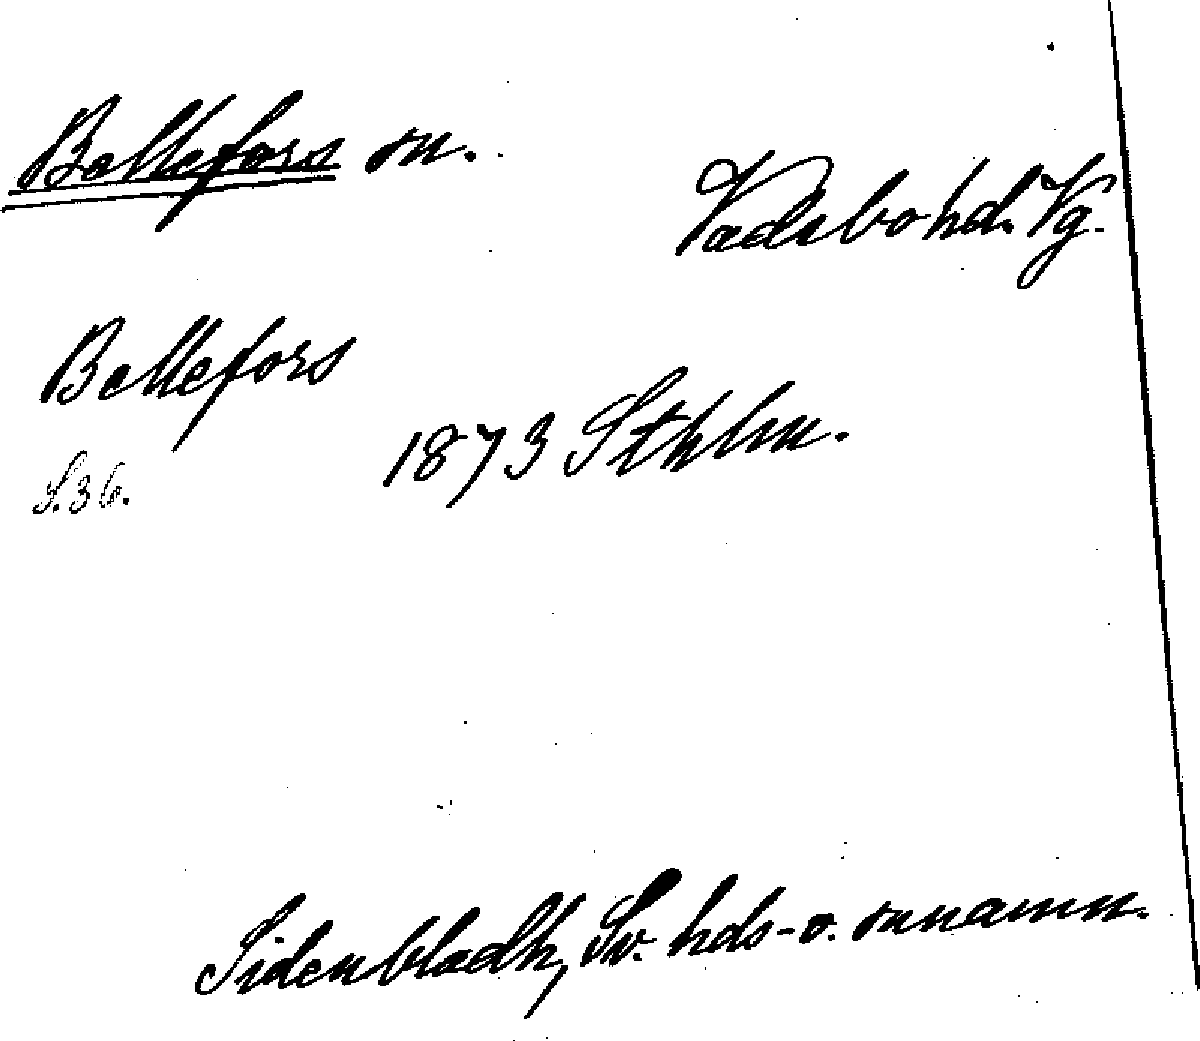 Bellefors sn.
Vadsbo hd. Vg.
Bellefors
1873 Sthlm.
S. 36.
Sidenbladh, Sv. hds- o. snnamn.